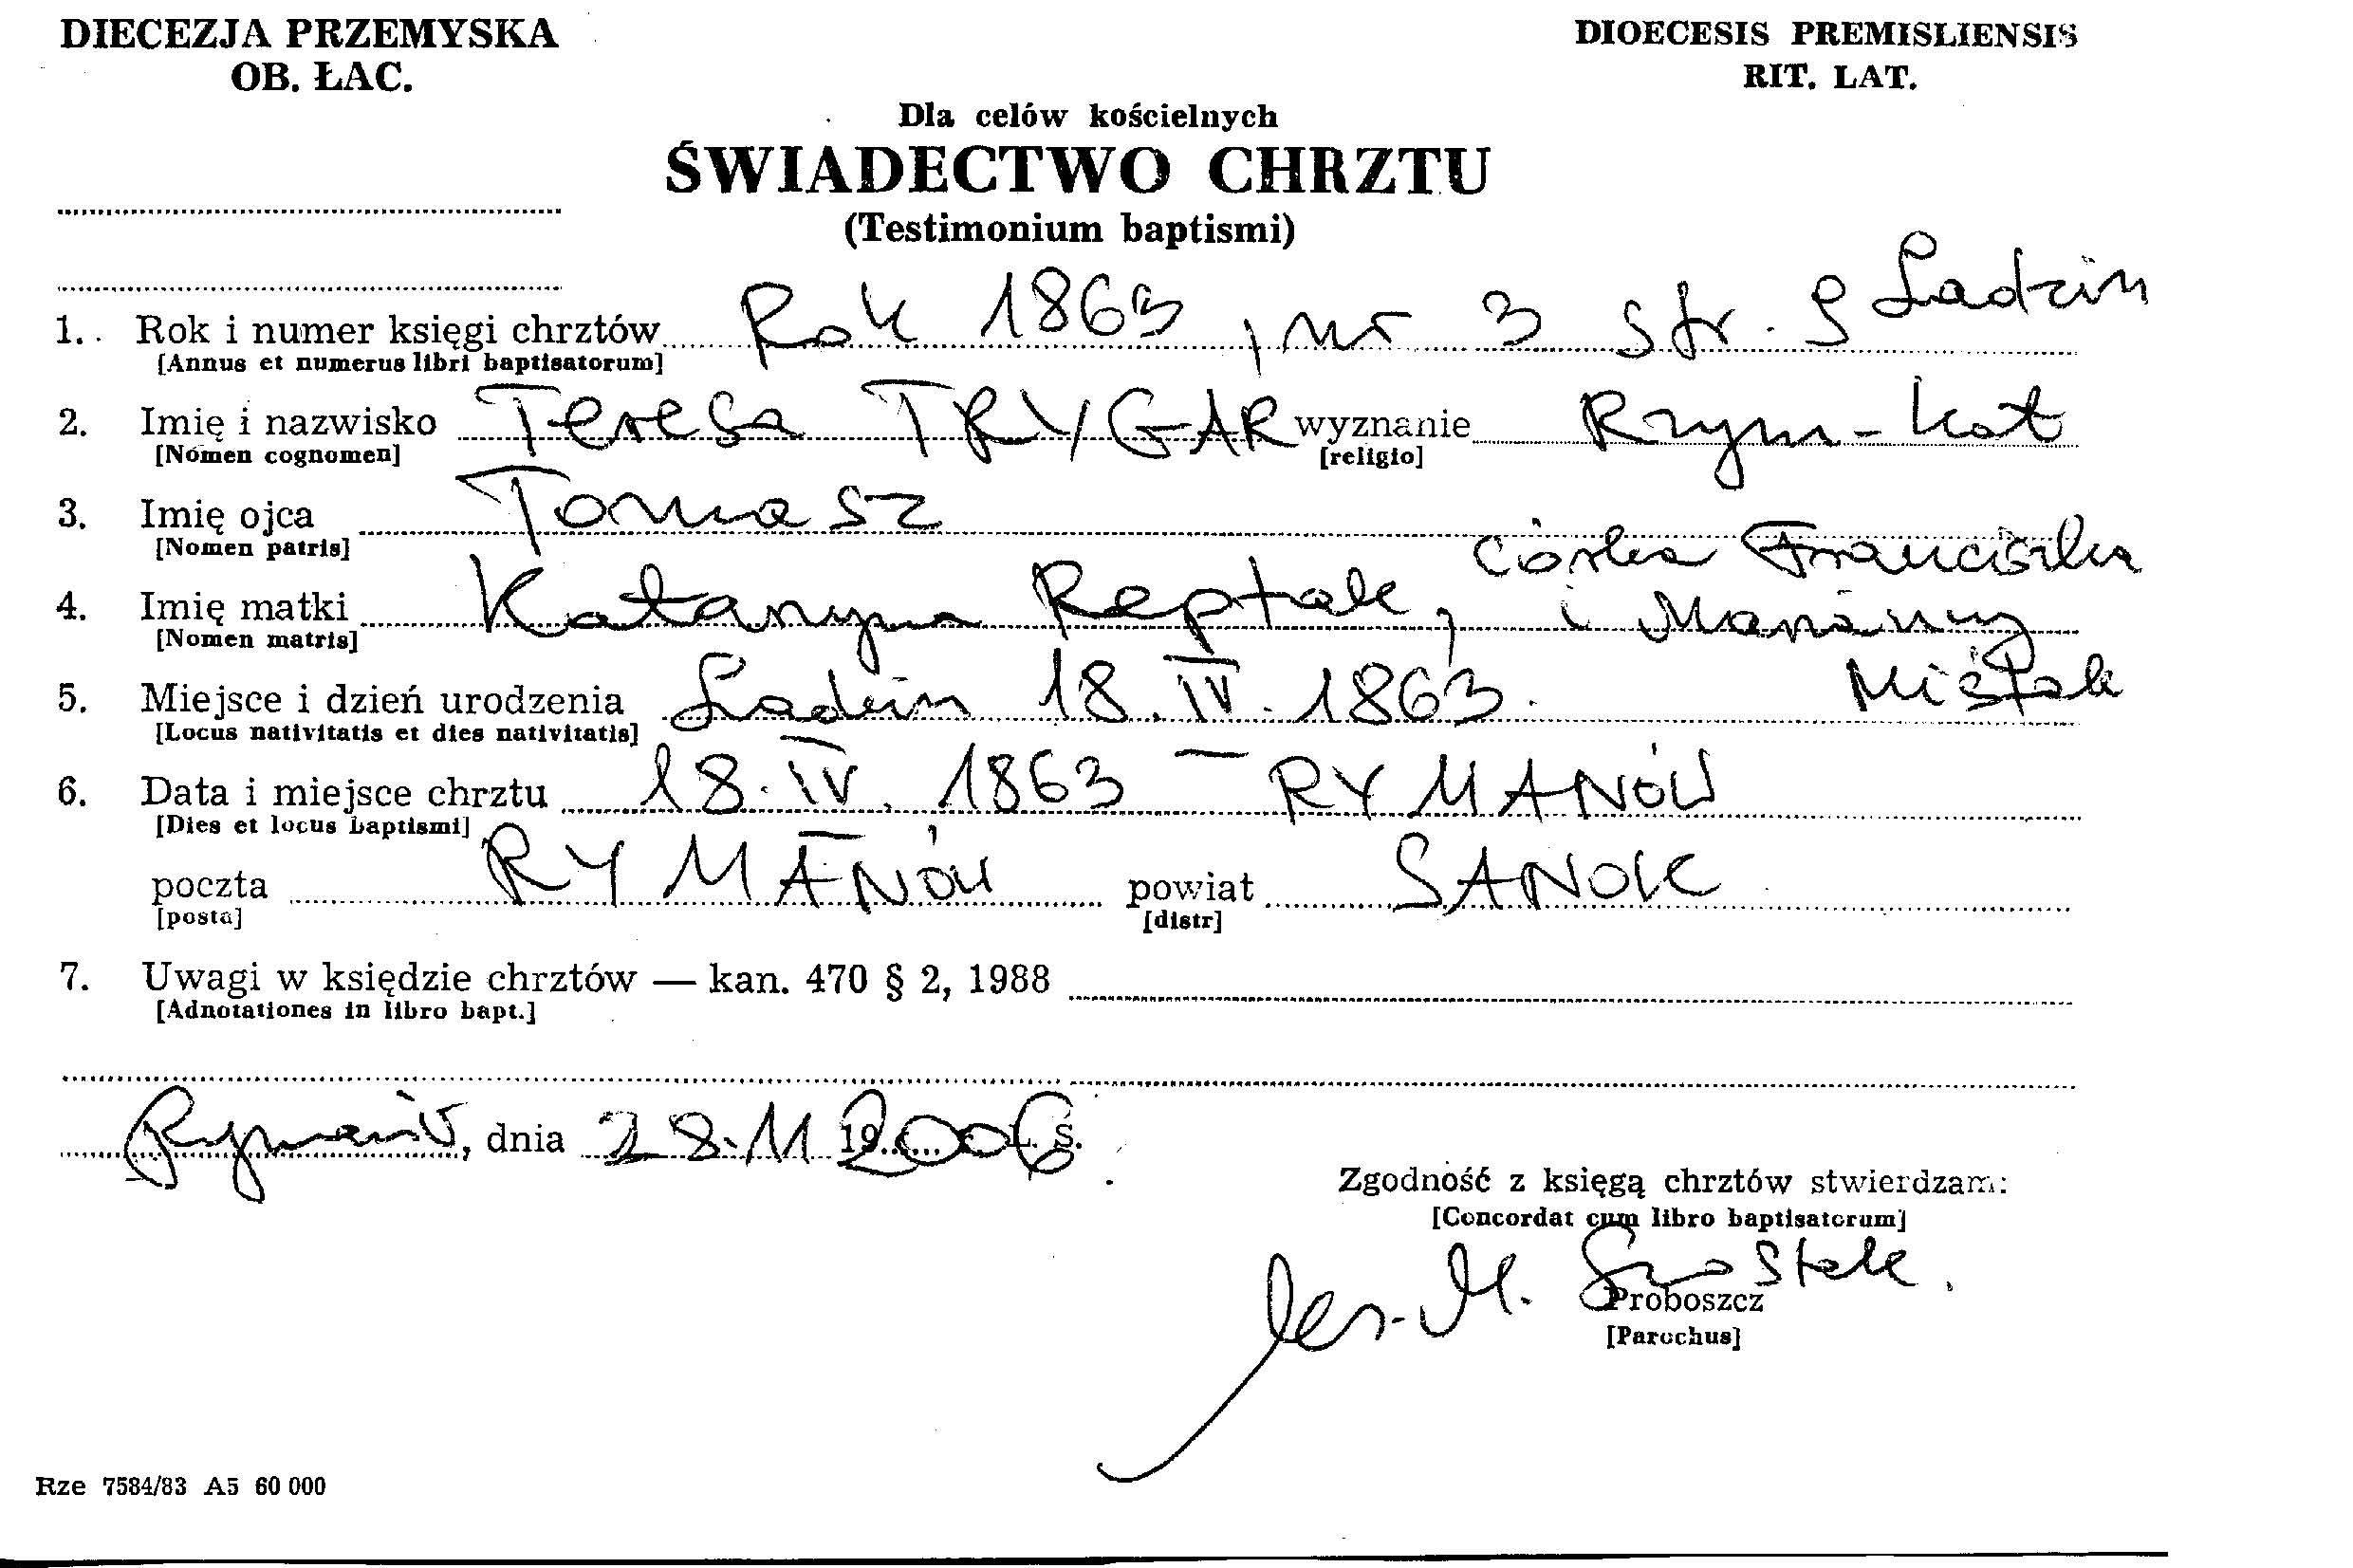 DIECEZJA PRZEMYSKA
OB. ŁAC.
DIOECESIS PREMISLIENSIS
RIT. LAT.
Dla celów kościelnych
ŚWIADECTWO CHRZTU
(Testimonium baptismi)
1. Rok i numer księgi chrztów Rok 1863, nr 3 str. 9 Ladzin
[Annus et numerus libri baptisatorum]
2. Imię i nazwisko Teresa TRYGAR wyznanie Rzym-kat
[Nomen cognomen] [religio]
3. Imię ojca Tomasz
[Nomen patris]
córka Franciszka
4. Imię matki Katarzyna Reptak, i Marianny
[Nomen matris]
5. Miejsce i dzień urodzenia Ladzin 18.IV.1863.
[Locus nativitatis et dies nativitatis]
6. Data i miejsce chrztu 18.IV.1863 – RYMANÓW
[Dies et locus baptismi]
poczta RYMANÓW powiat SANOK
[posta] [distr]
7. Uwagi w księdzie chrztów — kan. 470 § 2, 1988
[Adnotationes in libro bapt.]
Rymanów, dnia 28.11 2006 L. S.
Zgodność z księgą chrztów stwierdzam:
[Concordat cum libro baptisatorum]
Proboszcz
[Parochus]
Rze 7584/83 A5 60 000